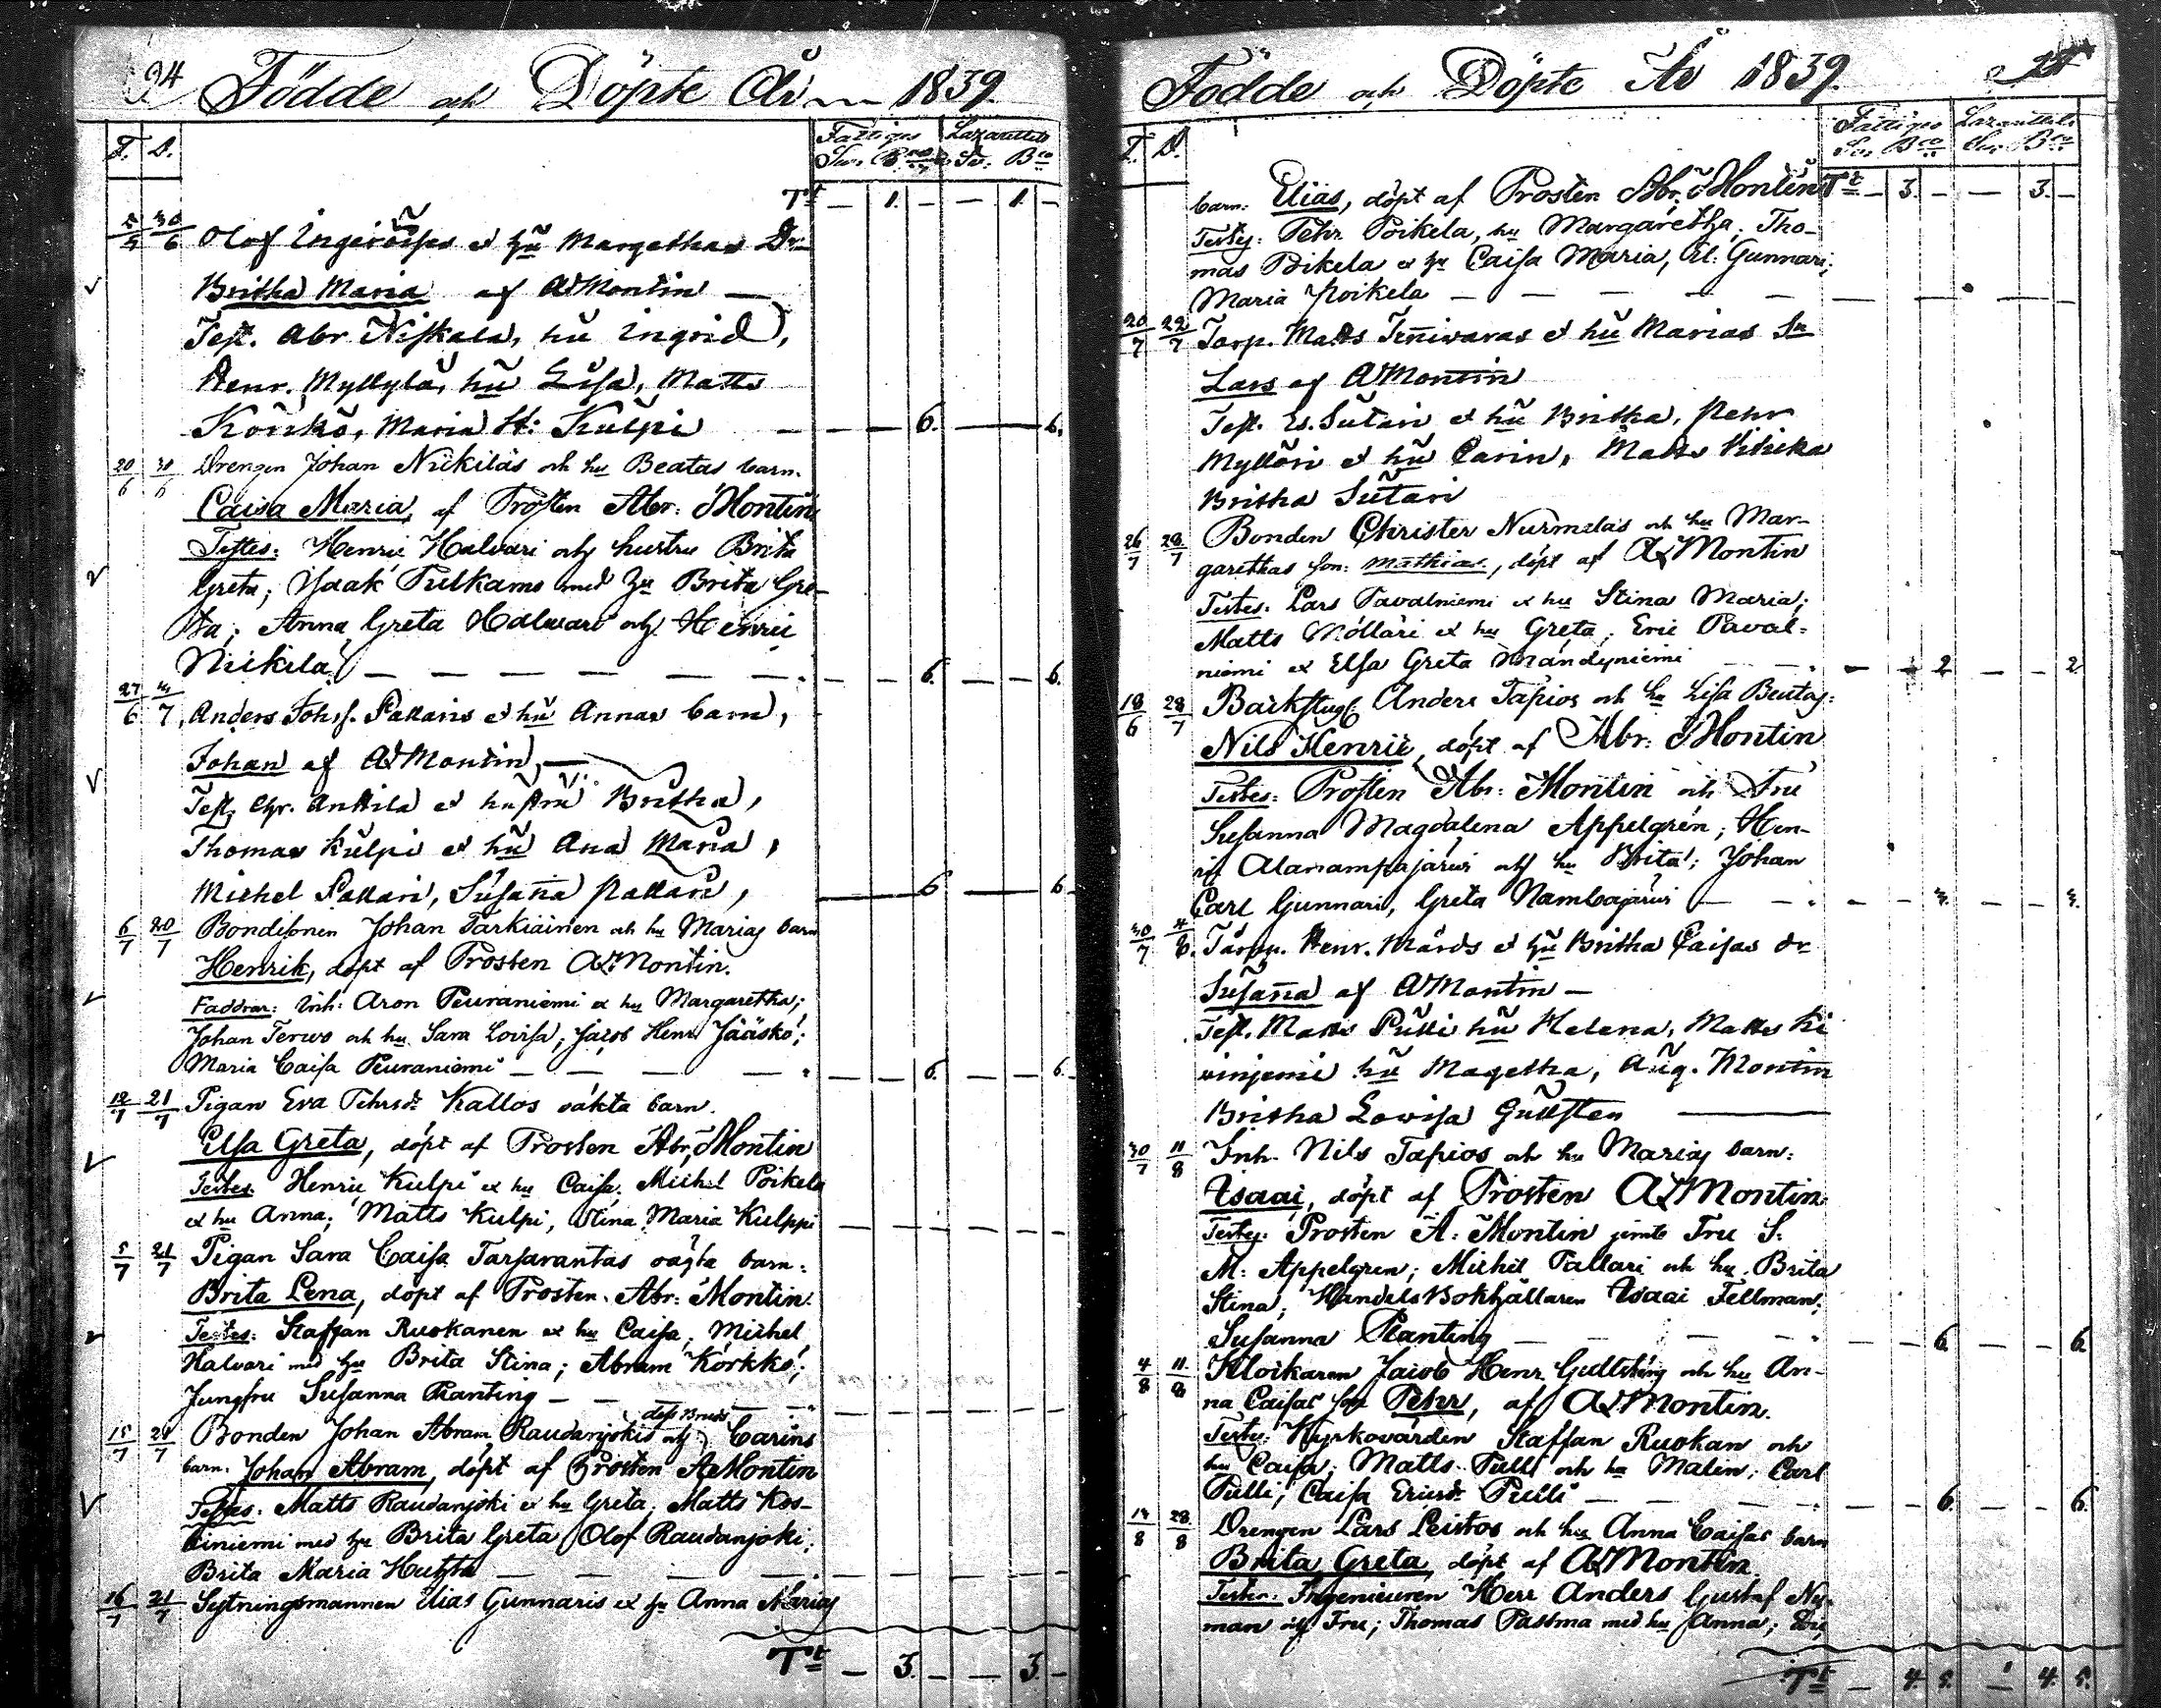 24 Födde och Döpte År 1839.
F. D. Fattiges Lazarettets
Sw. Bco Sw. Bco
Tt — 1. — — 1. —
5/5 30/6 Olof et hu Margethas Dr
Britha Maria af A Montin —
Test. Abr Niskala, hu Ingrid,
Henr. Myllylä, hu Lisa, Matts
Körkö, Maria H: Kulpi — — 6. — 6.
20/6 30/6 Drengen Johan Nickilas och hu Beatas barn.
Caisa Maria, af Prosten Abr: Montin
Testes: Henric Halvari och hustru Brita
Greta; Isaak Pulkamo med hu Brita Gre-
ta; Anna Greta Halvari och Henric
Nickilä — — — — — 6. — — 6.
27/6 /7 Anders Johss. Pallaris et hu Annas barn,
Johan af A Montin, —
Test, Chr. Anttila et hustru Britha,
Thomas Kulpi et hu Ana Maria,
Michel Pallari, Susaña Pallari, — 6 — 6
6/7 20/7 Bondesonen Johan Tarkiainen och hu Marias barn
Henrik, döpt af Prosten A Montin.
Faddrar: Inh: Aron Peuraniemi et hu Margaretha;
Johan Terwo och hu Sara Lovisa; Jacob Henr Jääskö;
Maria Caisa Peuraniemi — — — — 6. — — 6.
12/7 21/7 Pigan Eva Pehrsdr Kallos oäkta barn.
Elsa Greta, döpt af Prosten Abr, Montin
Testes. Henric Kulpi et hu Caisa; Michel Poikela
et hu Anna; Matts Kulpi, Stina Maria Kulppi — — — — — —
5/7 21/7 Pigan Sara Caisa Tarsarantas oägta barn:
Brita Lena, döpt af Prosten Abr: Montin.
Testes: Staffan Ruokanen et hu Caisa; Michel
Halvari med hu Brita Stina; Abram Körkkö;
Jungfru Susanna Planting — —
15/7 21/7 Bonden Johan Abram Raudanjokis och dess Brud Carins
barn. Johan Abram, döpt af Prosten A Montin
Testes. Matts Raudanjoki et hu Greta; Matts Kos-
tiniemi med hu Brita Greta Olof Raudanjoki;
Brita Maria Hutta — — — —
16/7 21/7 Sytningsmannen Elias Gunnaris et hu Anna Marias
Tt — 3. — — 3. —
Födde och Döpte År 1839.
F. D. Fattiges Lazarettets
Sw. Bco Sw. Bco
barn: Elias, döpt af Prosten Abr, Montin Tt — 3. — — 3. —
Testes: Pehr Poikela, hu Margaretha; Tho-
mas Poikela et hu Caisa Maria, El: Gunnari;
Maria Poikela — — — — —
20/7 22/7 Torp. Matts et hu Marias Sn
Lars af A Montin
Test. Es. Sutari et hu Britha, Pehr
Myllöri et hu Carin, Matts
Britha Sutari
26/7 28/7 Bonden Christer Nurmelas och hu Mar-
garethas son: Mathias, döpt af A Montin
Testes. Lars Pavalniemi et hu Stina Maria;
Matts Möllari et hu Greta; Eric Paval-
niemi et Elsa Greta Mändyniemi — — 2 — — 2
18/6 28/7 Anders Tapios och hu Lisa Beatas:
Nils Henric, döpt af Abr: Montin
Testes: Prosten Abr: Montin och Fru
Susanna Magdalena Appelgrén; Hen-
ric Alanampajärwi och hu Brita; Johan
Carl Gunnari, Greta Nambajärwi — — 3. — — 3.
30/7 4/8 Torp. Henr. Mårds et hu Britha Caisas dr
Susaña af A Montin —
Test. Matts Pulli hu Helena, Matts Ki
vinjemi hu Magetha, Aug. Montin
Britha Lovisa Gullsten —
30/7 11/8 Inh. Nils Tapios och hu Marias barn:
Isaac, döpt af Prosten A Montin
Testes: Prosten A: Montin jemte Fru S:
M: Appelgren; Michel Pallari och hu Brita
Stina; HandelsBokhållaren Isaac Fellman;
Susanna Planting — — — — 6 — — 6
4/8 11/8 Klockaren Jacob Henr. Gullsténs och hu An-
na Caisas son Pehr, af A Montin.
Testes: Kyrkovärden Staffan Ruokan och
hu Caisa; Matts Pulli och hu Malin; Carl
Pulli; Caisa Ericsdr Pulli — — 6. — — 6.
18/8 28/8 Drengen Lars Leistos och hu Anna Caisas barn
Brita Greta, döpt af A Montin.
Testes: Ingenieuren Herr Anders Gustaf Ny-
man och Fru; Thomas Pastma med hu Anna;
Tt — 4. 5. — 4. 5.